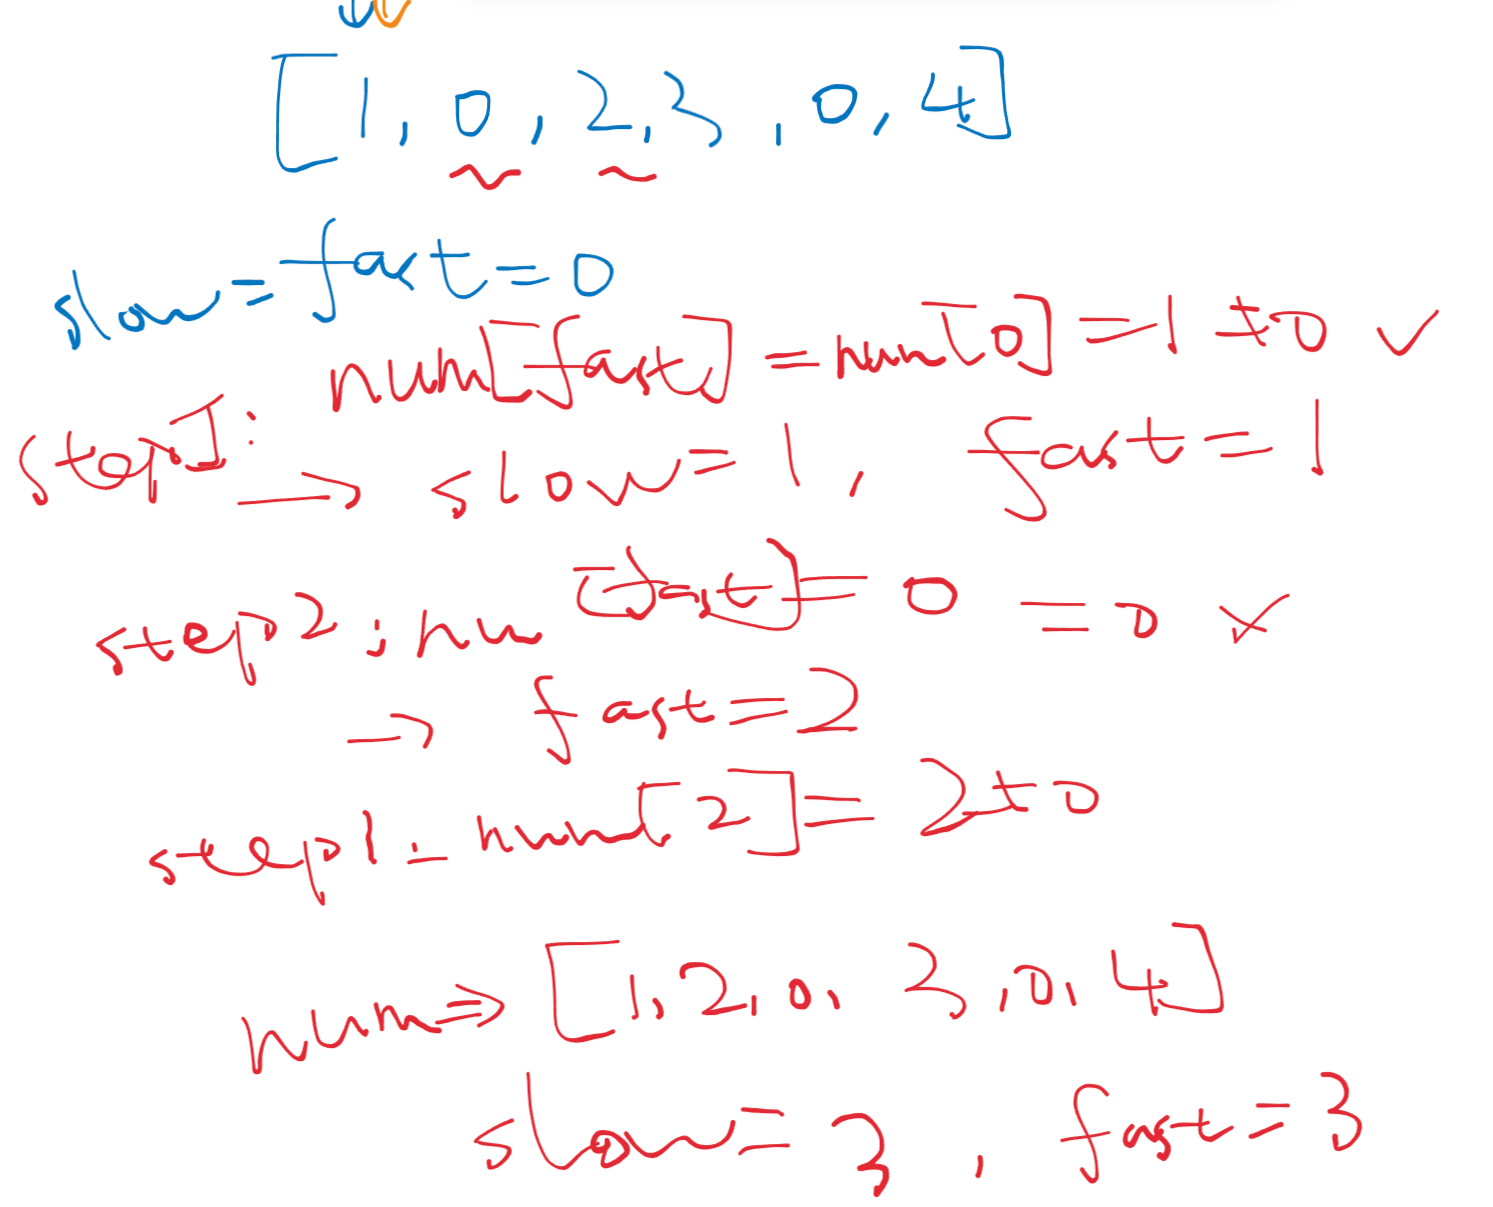 [1, 0, 2, 3, 0, 4]
slow = fast = 0
step1: num[fast] = num[0] = 1 ≠ 0 ✓
→ slow = 1, fast = 1
step2: nu [fast] = 0 = 0 ×
→ fast = 2
step1: num[2] = 2 ≠ 0
num ⇒ [1, 2, 0, 3, 0, 4]
slow = 3, fast = 3